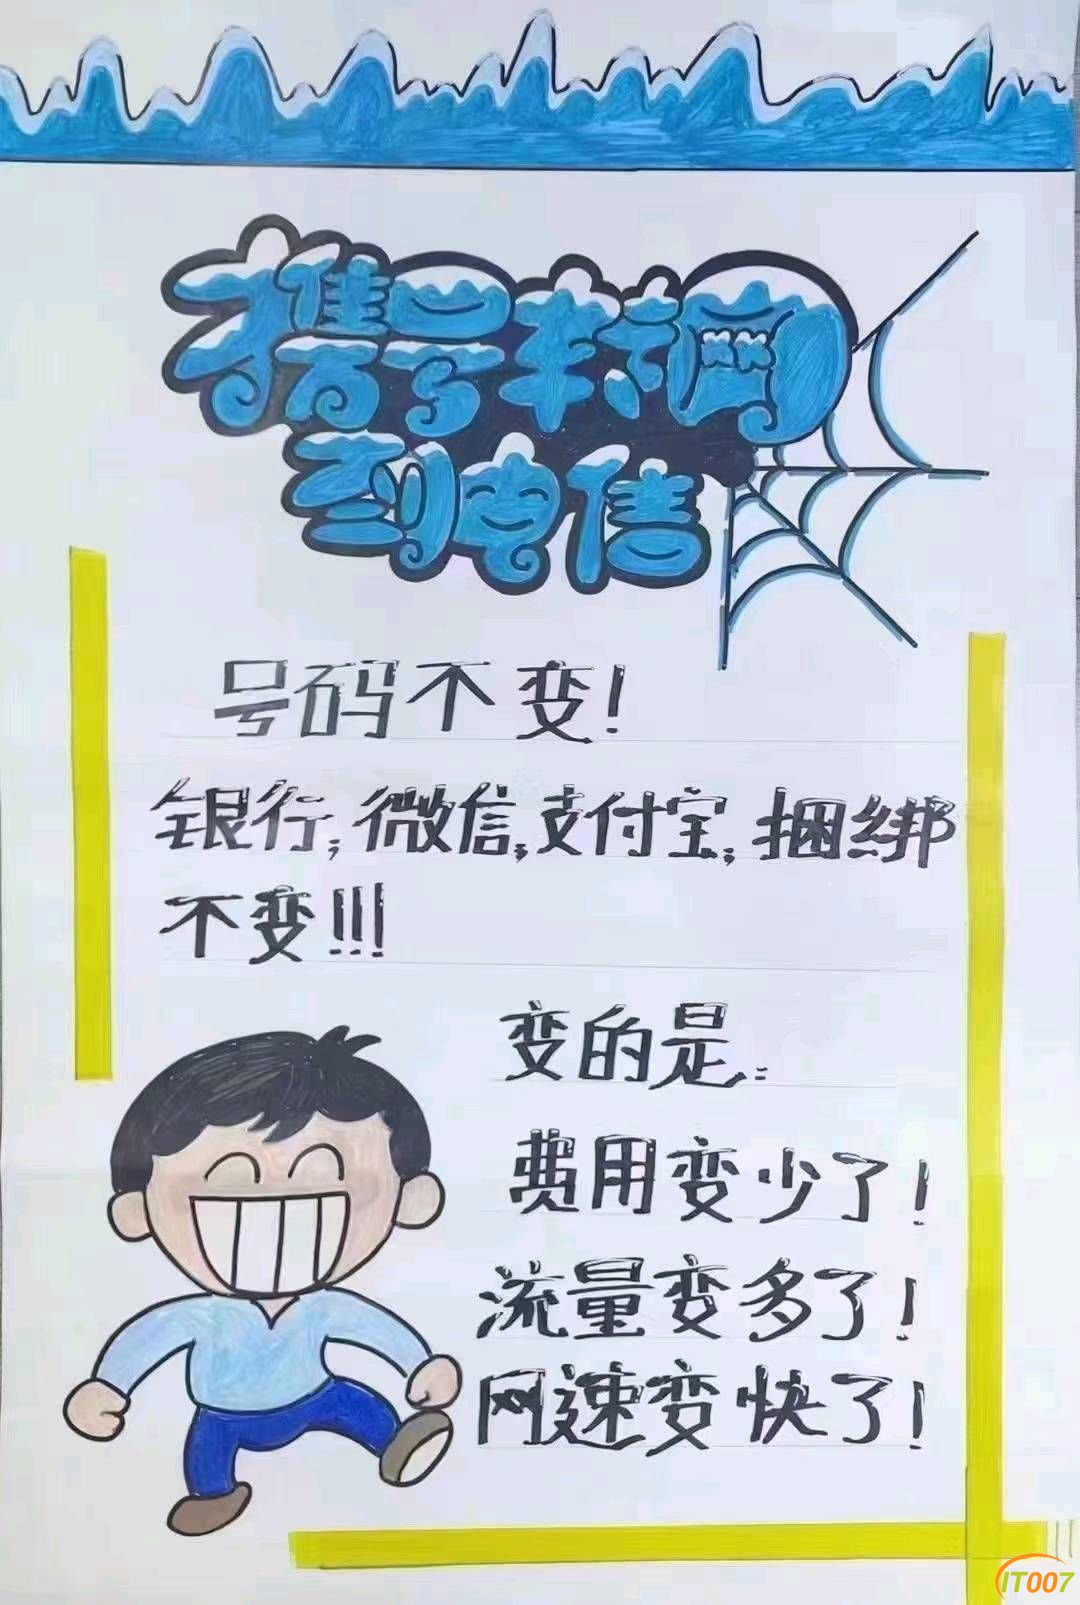 携号转网
到电信
号码不变!
银行;微信;支付宝;捆绑
不变!!!
变的是:
费用变少了!
流量变多了!
网速变快了!
IT007